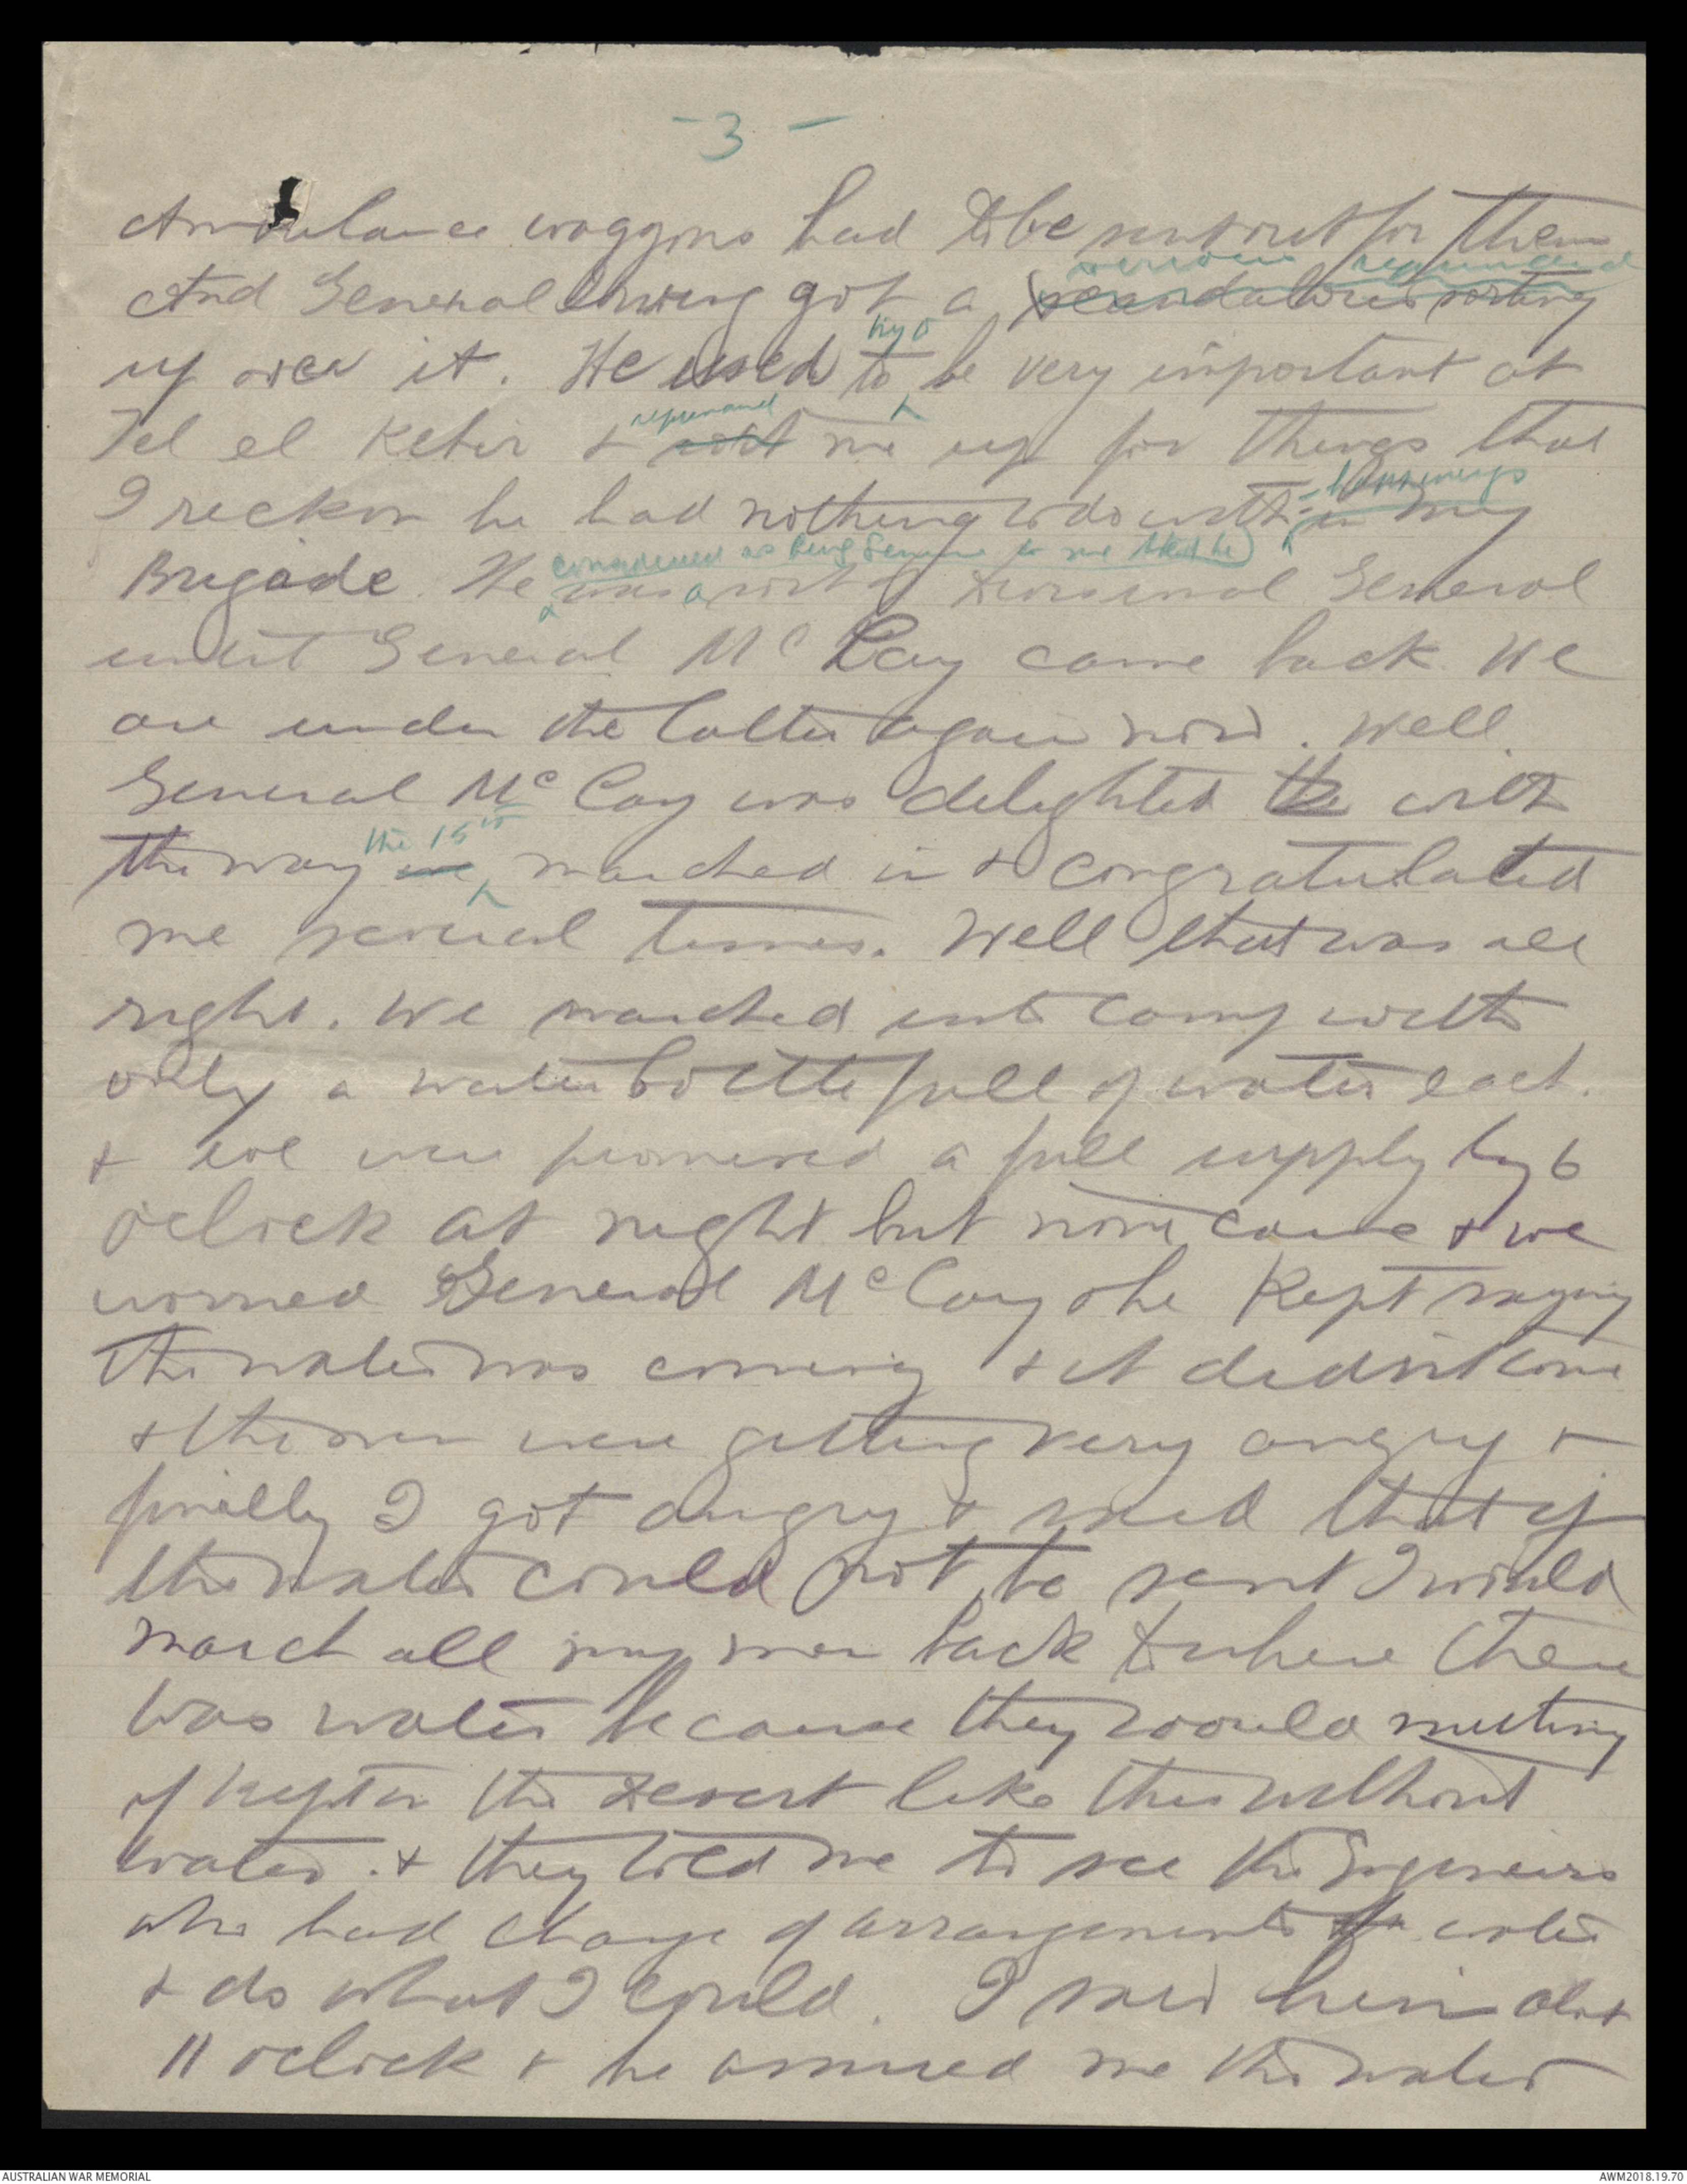 - 3 -
Ambulance waggons had to be sent out for them
serious reprimand
And General Irving got a scandalous sorting
try to
up over it. He used to be very important at
reprimand
Tel el Kebir & sort me up for things that
happenings
I reckon he had nothing to do with in my
considered as being Senior to me that he
Brigade. He was a sort of Divisional General
until General McCay came back. We
are under the latter again now. Well.
General McCay was delighted the with
the 15th
the way we marched in & congratulated
me several times. Well that was all
right. We marched into camp with
only a water bottle full of water each.
& we were promised a full supply by 6
oclock at night but none came & we
worried General McCay & he kept saying
the water was coming & it didnt come
& the men were getting very angry &
finally I got angry & said that if
the water could not be sent I would
march all my men back to where there
was water because they would mutiny
if kept in the desert like this without
water. & they told me to see the Engineers
who had charge of arrangements for water
& do what I could. I saw him abt
11 oclock & he assured me the water
AUSTRALIAN WAR MEMORIAL
AWM2018.19.70